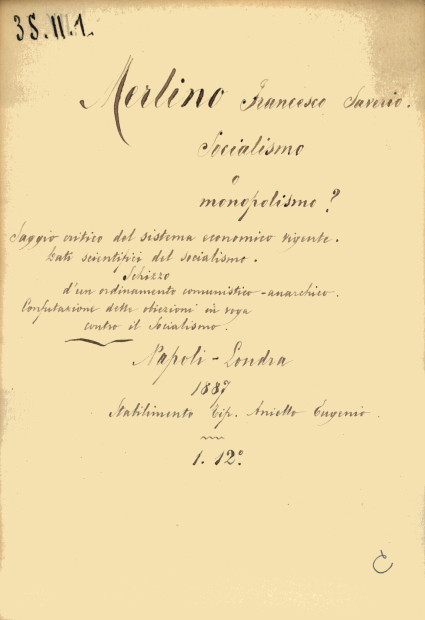 3S.II.1.
Merlino Francesco Saverio.
Socialismo
o
monopolismo?
Saggio critico del sistema economico vigente.
Dati scientifici del socialismo.
Schizzo
d'un ordinamento comunistico-anarchico.
Confutazione delle obiezioni in voga
contro il Socialismo.
Napoli - Londra
1887
Stabilimento Tip. Aniello Eugenio.
1. 12º.